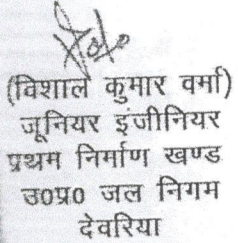 (विशाल कुमार वर्मा)
जूनियर इंजीनियर
प्रथम निर्माण खण्ड
उ०प्र० जल निगम
देवरिया